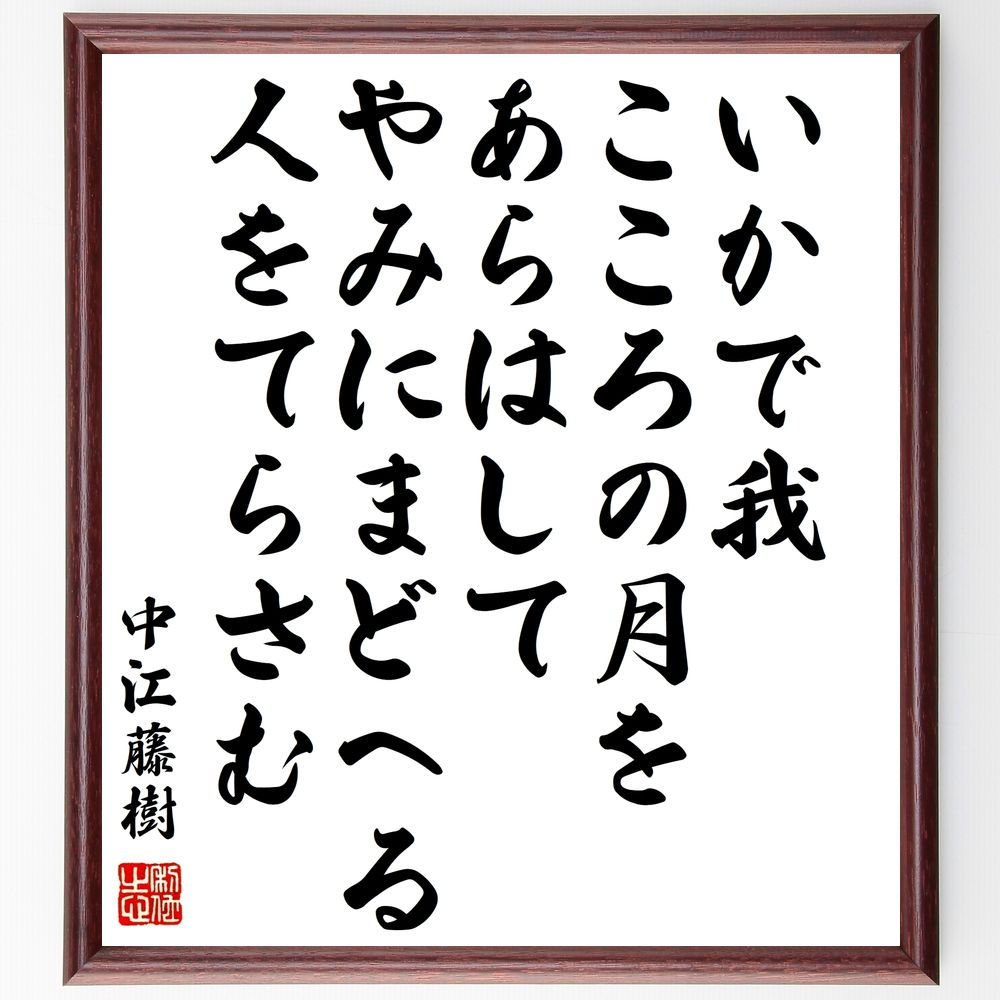 いかで我
こころの月を
あらはして
やみにまどへる
人をてらさむ
中江藤樹